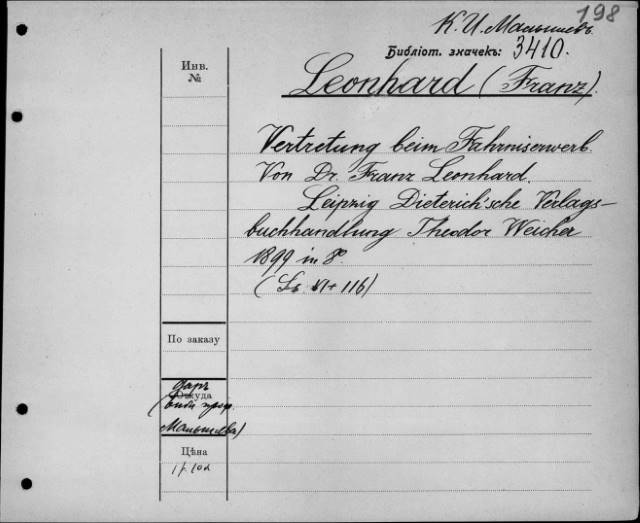 198
К. И. Малышевъ
Библіот. значекъ: 3410.
Инв.
№
Leonhard (Franz).
Vertretung beim Fahrniserwerb.
Von Dr. Franz Leonhard.
Leipzig Dieterich'sche Verlags-
buchhandlung Theodor Weicher
1899 in 8°.
( VI + 116)
По заказу
даръ
Откуда
(библ. проф.
Малышева)
Цѣна